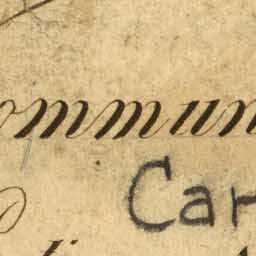 ommun
Car